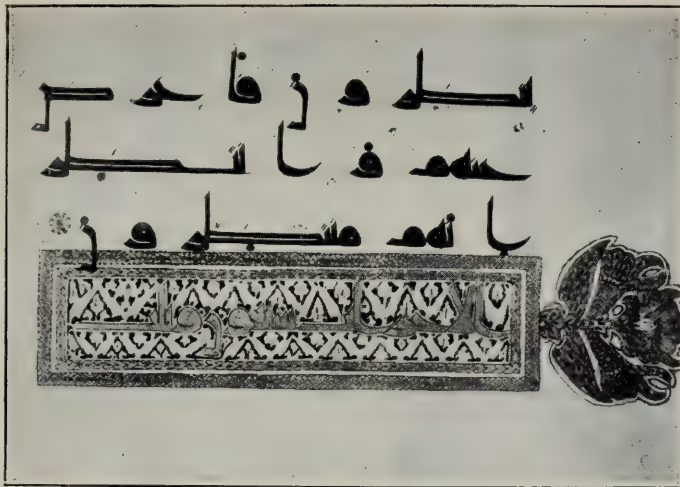 ينظرون فاعرض
عنهم وانتظر
انهم منتظرون